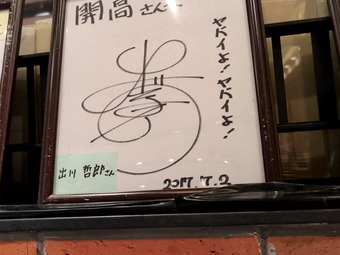 開高さんへ
ヤバイよ!ヤバイよ!
出川 哲郎さん
2017.7.2